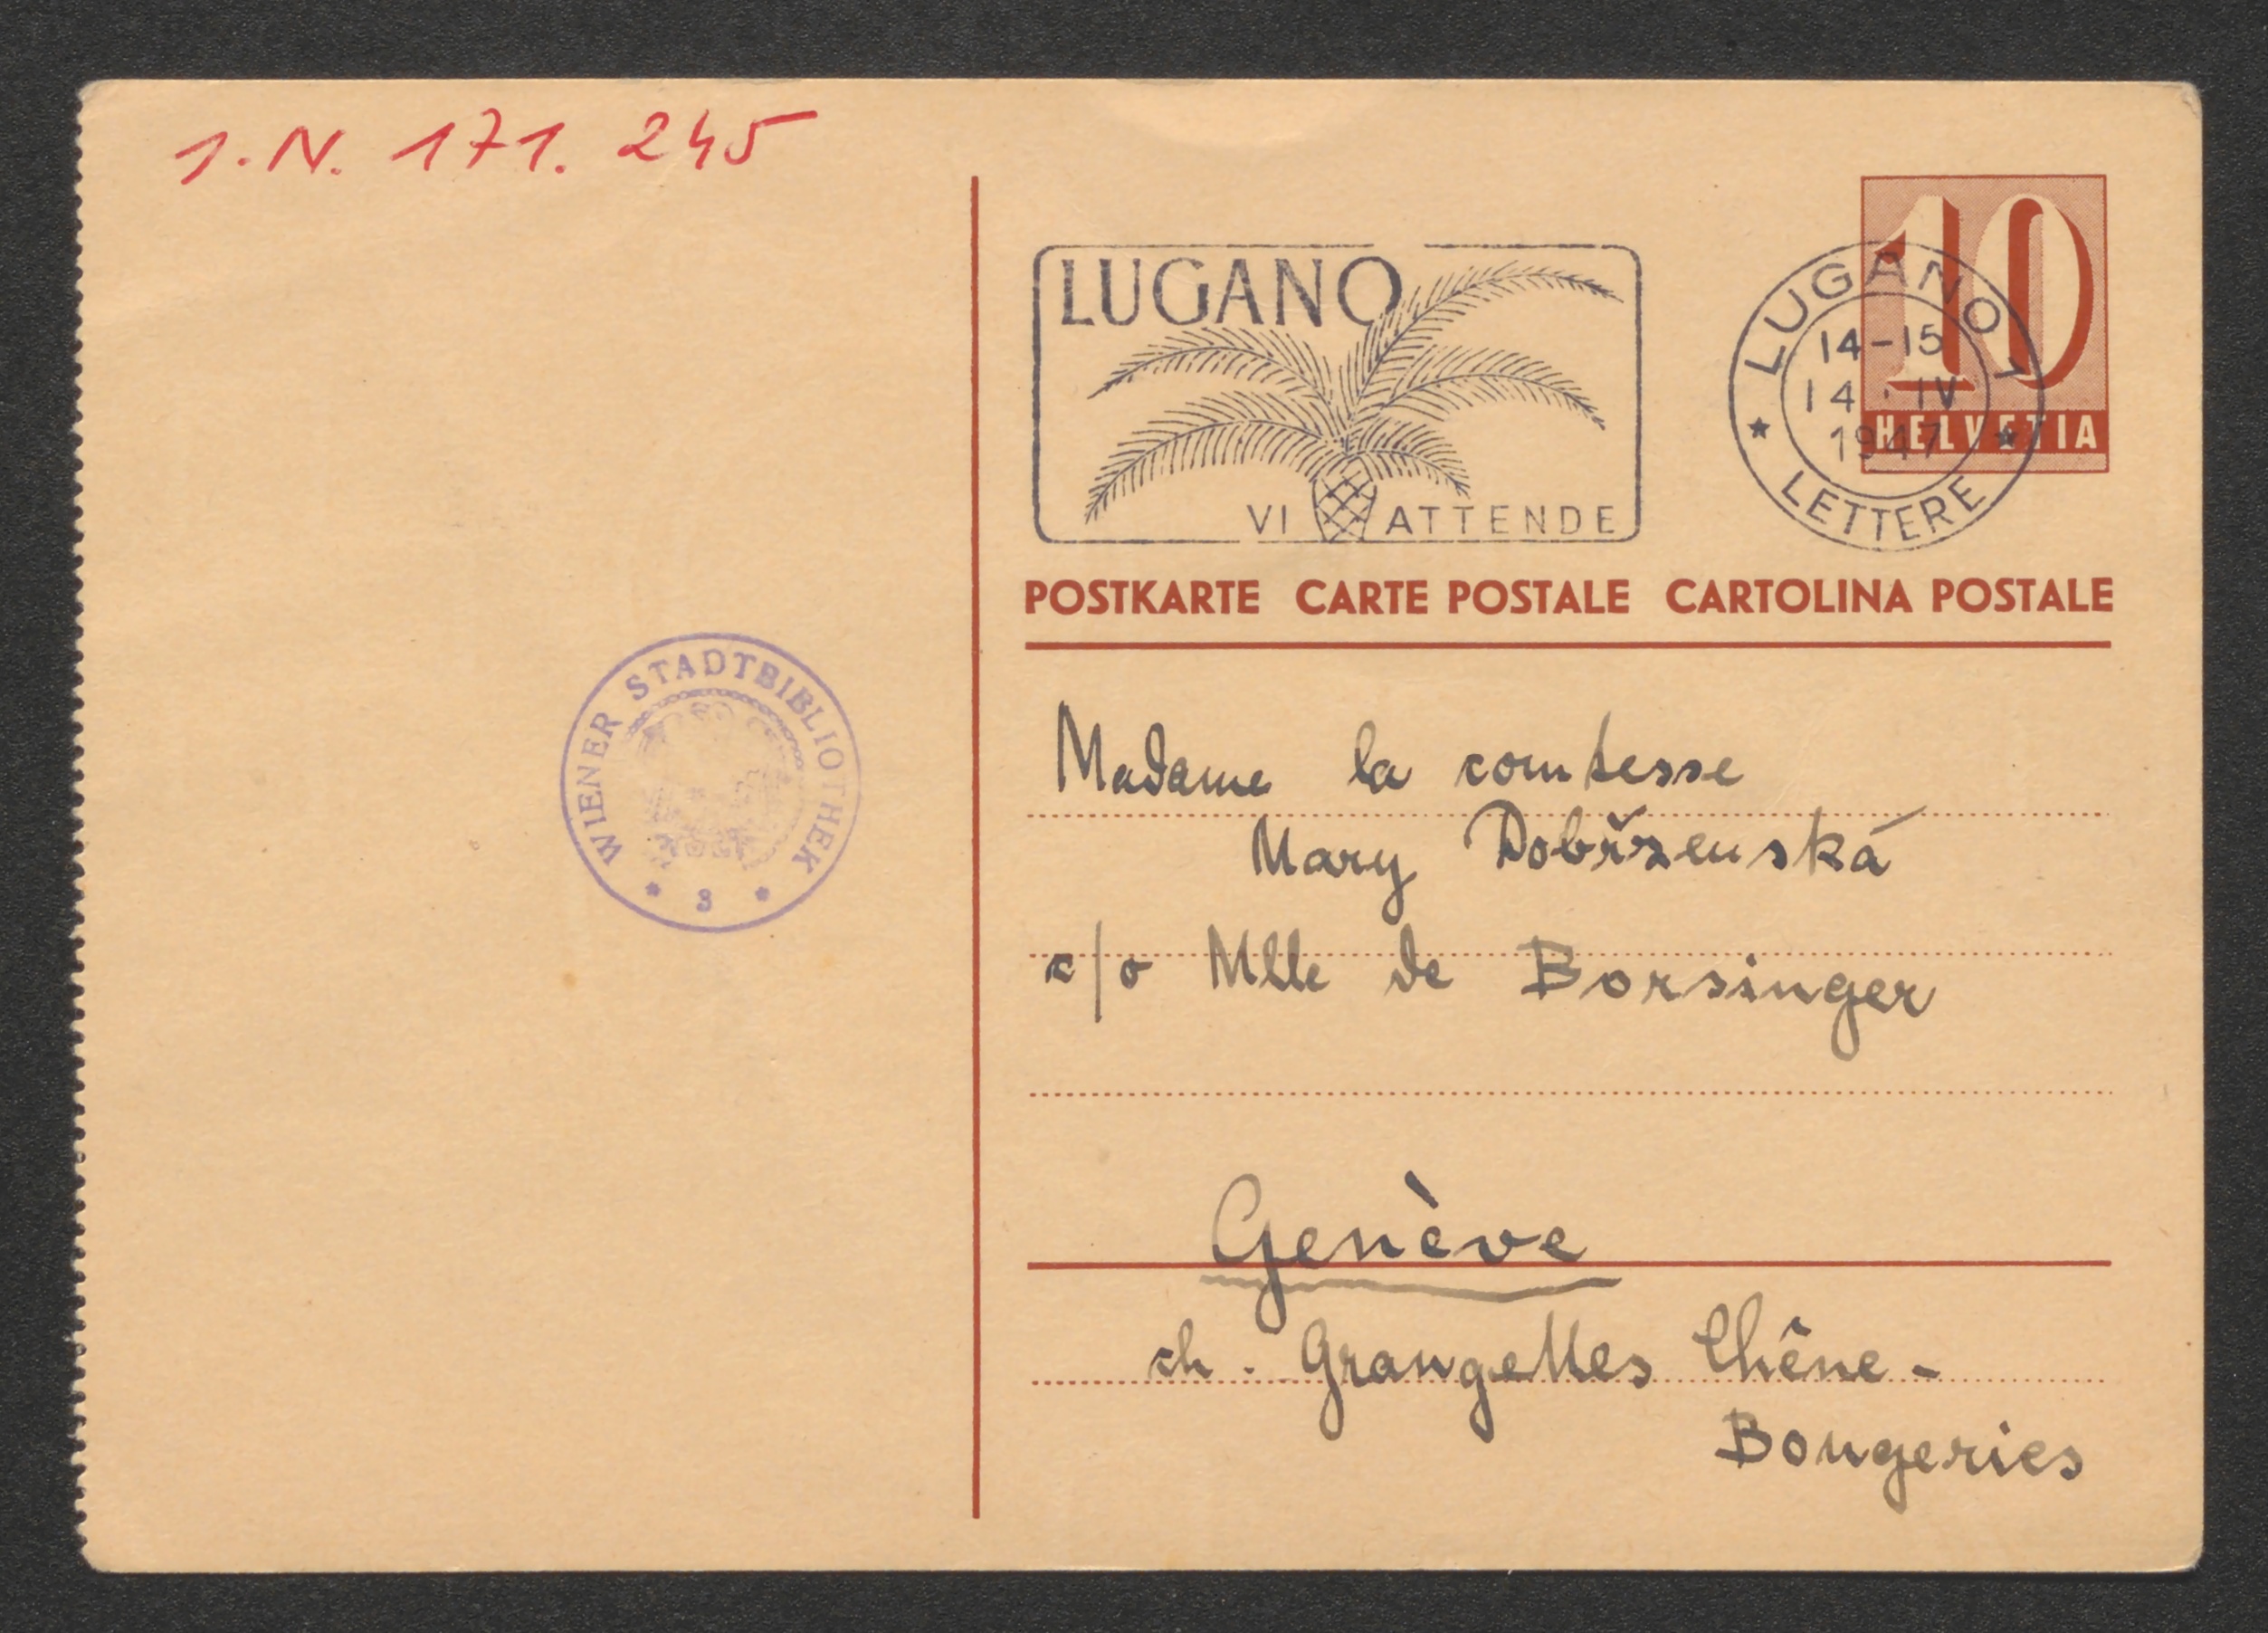 1.N. 171.245
LUGANO
VI ATTENDE
LUGANO 1
14-15
14·IV
1947
LETTERE
10
HELVETIA
POSTKARTE CARTE POSTALE CARTOLINA POSTALE
WIENER STADTBIBLIOTHEK
3
Madame la comtesse
Mary Dobřzenská
c/o Mlle de Borsinger
Genève
ch. Grangettes Chêne-
Bougeries